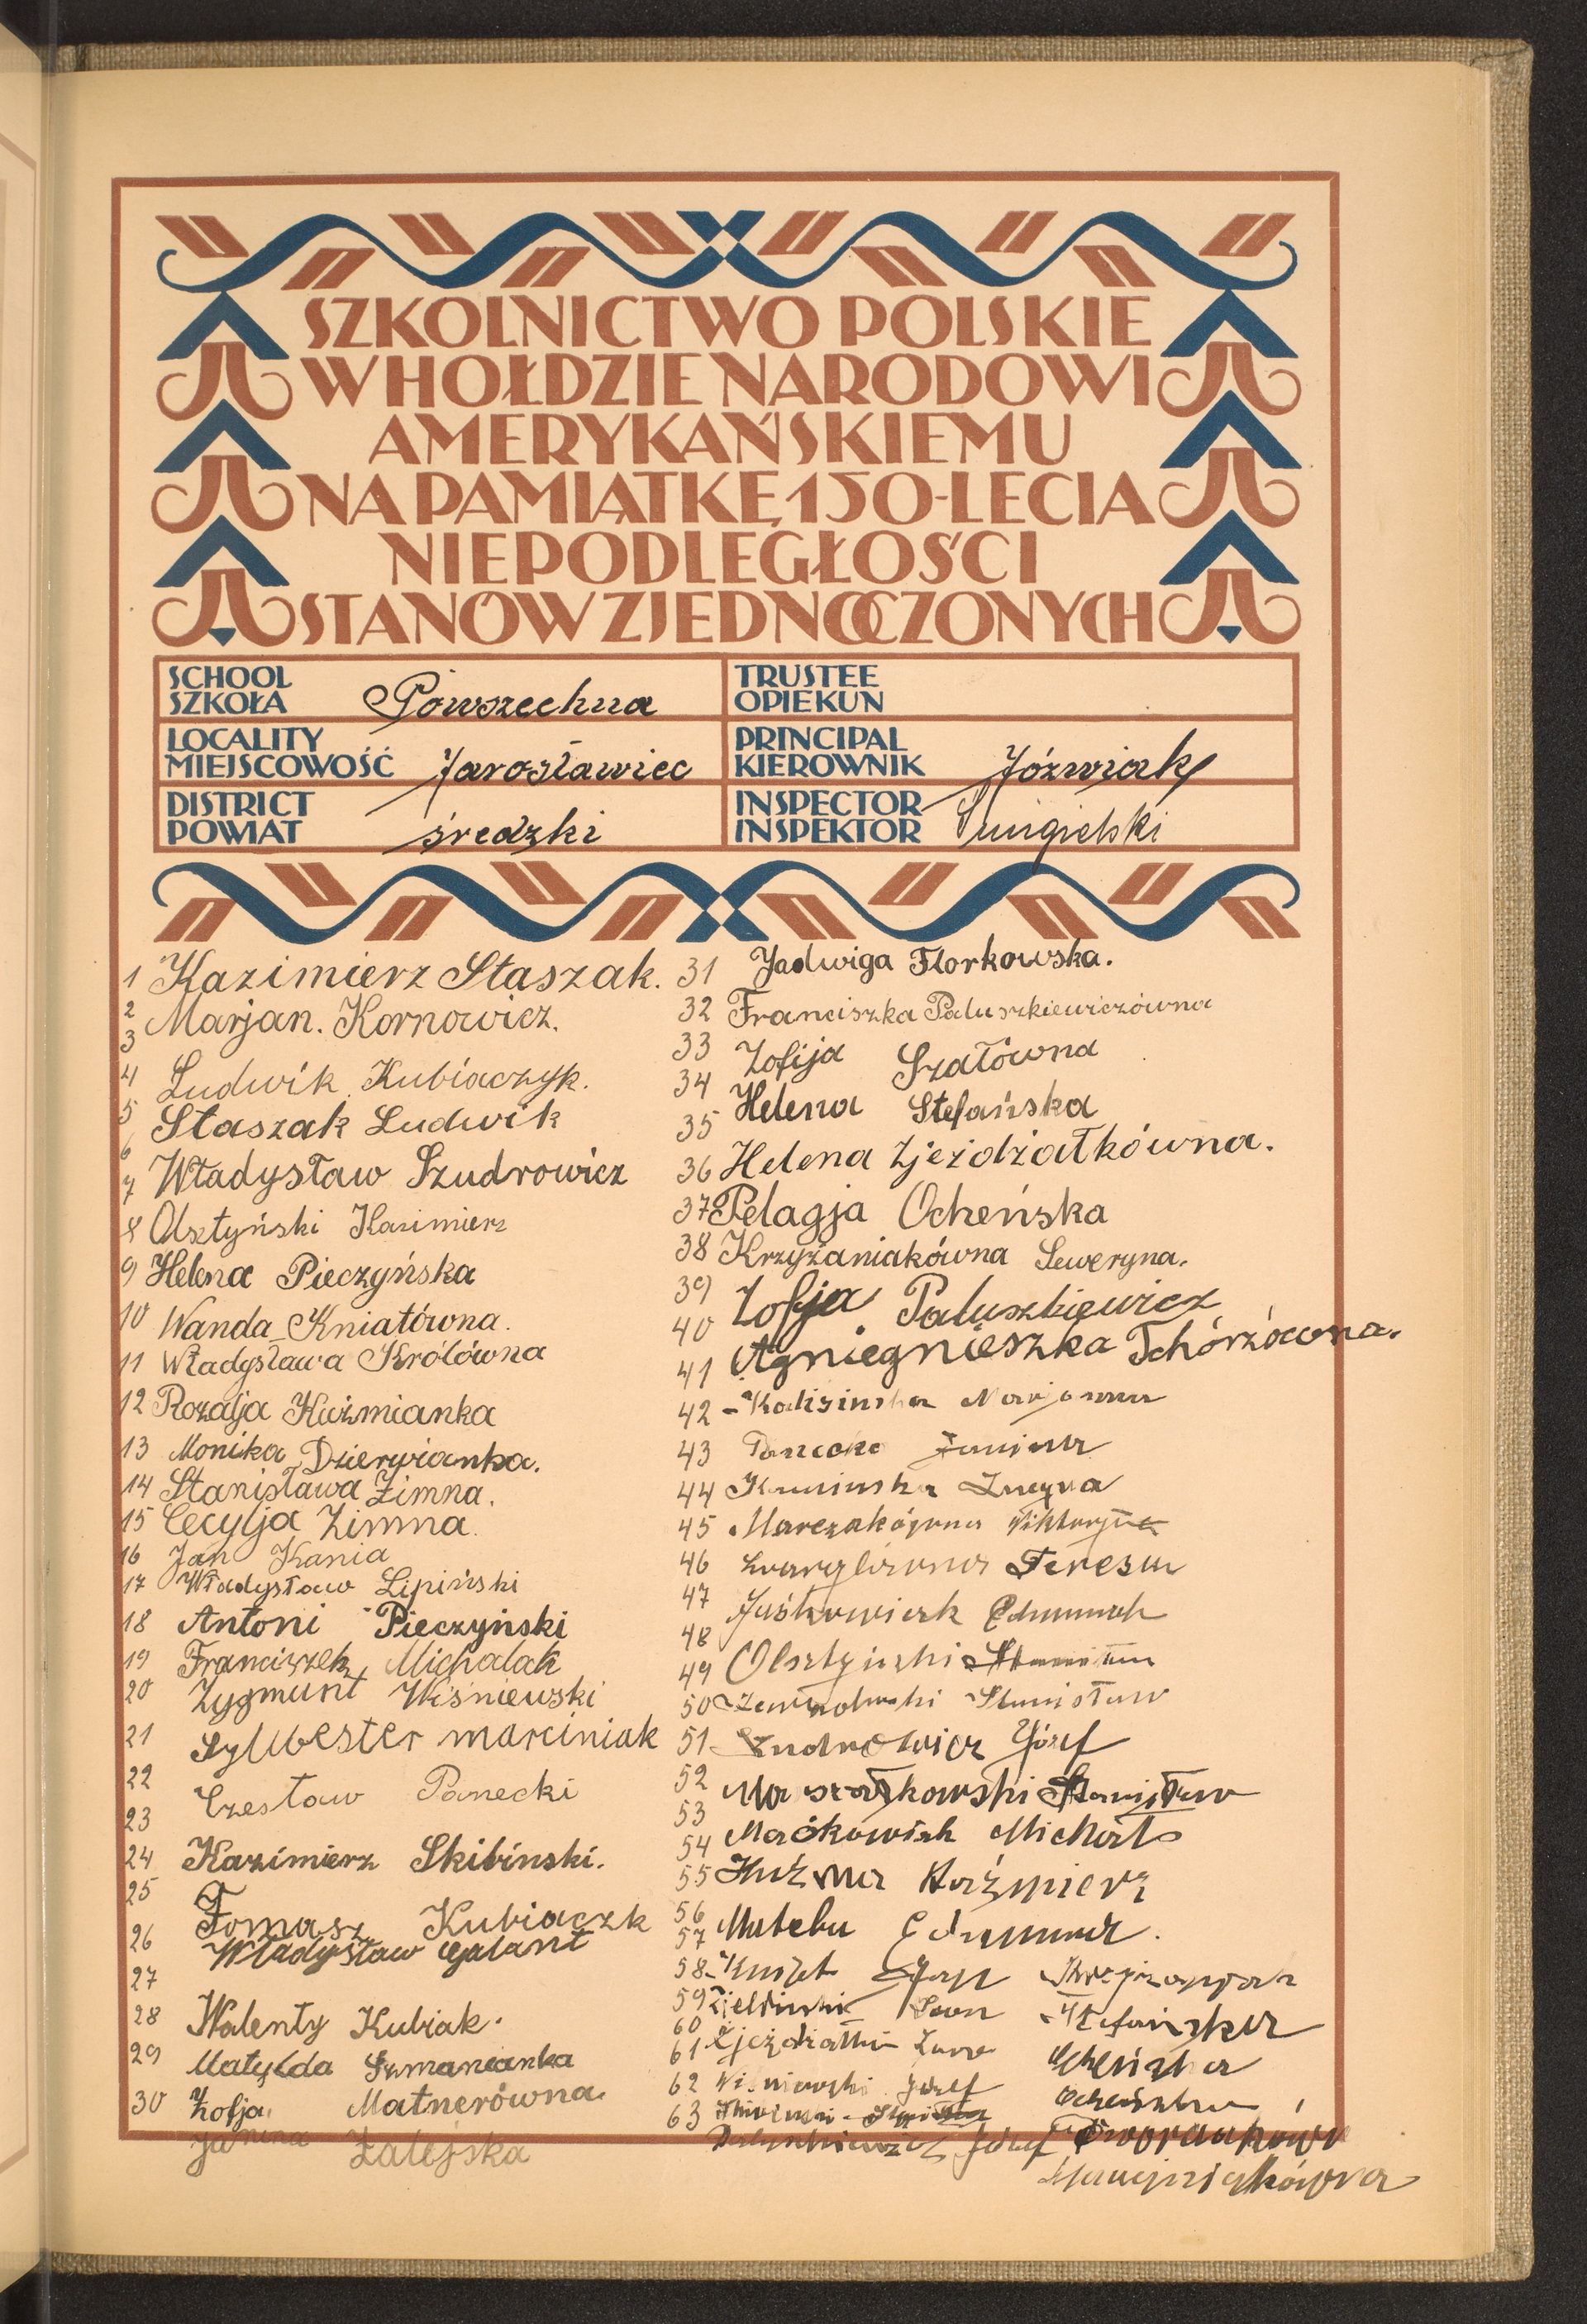 SZKOLNICTWO POLSKIE
W HOŁDZIE NARODOWI
AMERYKAŃSKIEMU
NA PAMIĄTKĘ 150-LECIA
NIEPODLEGŁOŚCI
STANÓW ZJEDNOCZONYCH
SCHOOL
SZKOŁA Powszechna
LOCALITY
MIEJSCOWOŚĆ Jarosławiec
DISTRICT
POWIAT średzki
TRUSTEE
OPIEKUN
PRINCIPAL
KIEROWNIK Jóźwiak
INSPECTOR
INSPEKTOR
1 Kazimierz Staszak.
2 Marjan. Kornowicz.
3
4 Ludwik Kubiaczyk.
5 Staszak Ludwik
6
7 Władysław Szudrowicz
8 Olsztyński Kazimierz
9 Helena Pieczyńska
10 Wanda Kniatówna.
11 Władysława Królówna
12 Rozalja Kuźmianka
13 Monika Dzierwianka.
14 Stanisława Zimna.
15 Cecylja Zimna.
16 Jan Kania
17 Władysław Lipiński
18 Antoni Pieczyński
19 Franciszek Michalak
20 Zygmunt Wiśniewski
21 Sylwester marciniak
22 Czesław Panecki
23
24 Kazimierz Skibiński.
25 Tomasz Kubiaczk
26 Władysław Galant
27
28 Walenty Kubiak.
29 Matylda Szmanianka
30 Zofja Matnerówna.
Janina Zalejska
31 Jadwiga Florkowska.
32 Franciszka Paluszkiewiczówna
33 Zofija Szatówna
34 Helena Stefańska
35
36 Helena Zjeżdżałkówna.
37 Pelagja Ocheńska
38 Krzyżaniakówna Seweryna.
39 Zofja Paluszkiewicz
40 Agniegnieszka Tchórzówna.
41
42 Marjanna
43 Panecka Janina
44 Kaminska
45 Marczakówna Wiktorja
46 Teresa
47 Jaśkowiak Edmund
48
49 Olsztyński
50 Stanisław
51 Szudrowicz Józef
52 Marszałkowski Stanisław
53
54 Maćkowiak Michał
55 Kuźma Kaźmierz
56
57 Matela Edmund.
58
59 Zieliński Leon Stefańska
60
61 Ocheńska
62 Wiśniewski Józef Ocheńska
63
Józef